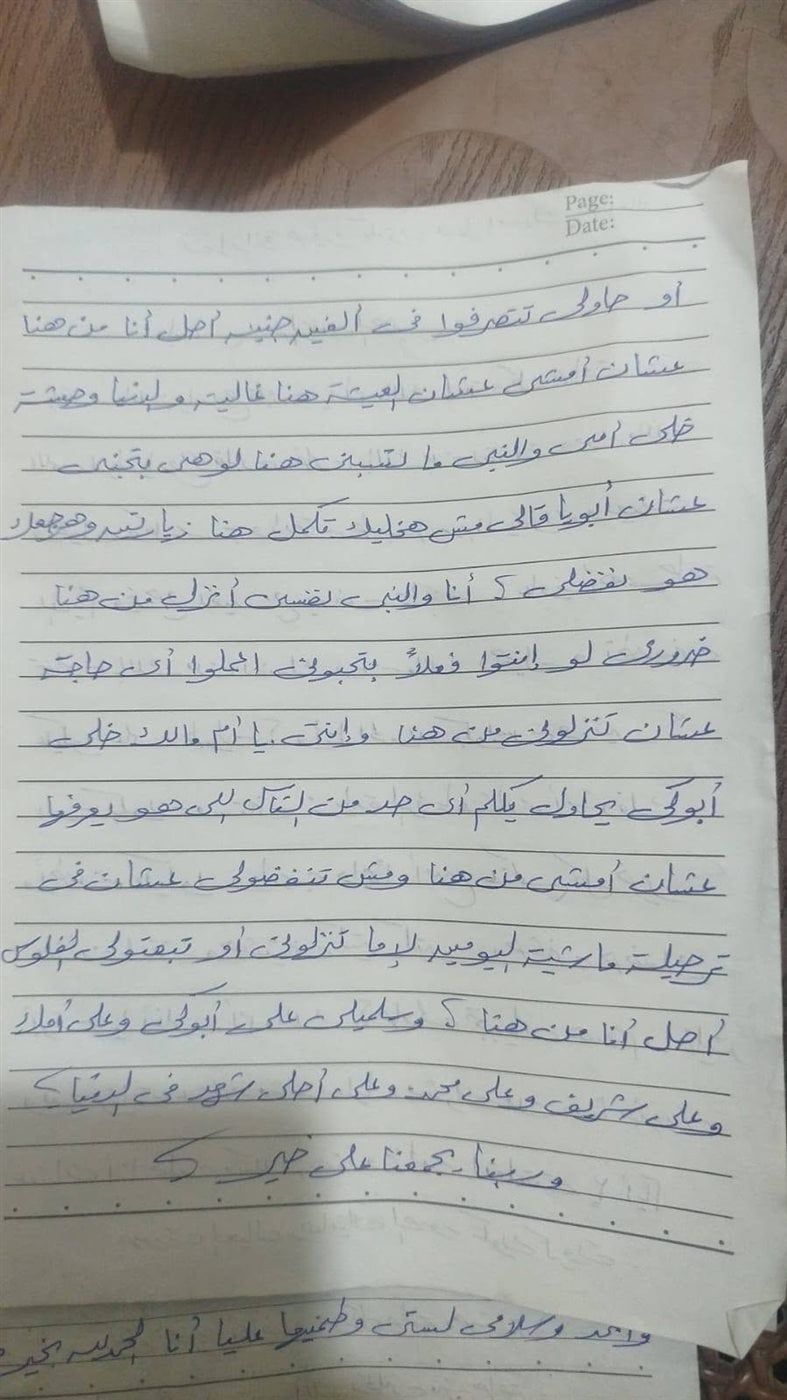 Page:
Date:
أو حاولى تتصرفوا فى ألفين جنيه أحل أنا من هنا
عشان أمشى عشان العيشة هنا غالية والدنيا وحشة
خلى أمى والنبى ما تسبنى هنا لو هى بتحبنى
عشان أبويا قالى مش هخليك تكمل هنا زيارتين وهرجعك
هو بفضلى أنا والنبى نفسى أنزل من هنا
ضرورى لو إنتوا فعلاً بتحبونى اعملوا أى حاجة
عشان تنزلونى من هنا وإنتى يا أم مالك خلى
أبوكى يحاول يكلم أى حد من الناس اللى هو يعرفها
عشان أمشى من هنا ومش تنفضولى عشان فى
ترحيلة ماشية اليومين لإما تنزلونى أو تبعتولى الفلوس
أحل أنا من هنا وسلميلى على أبوكى وعلى أملك
وعلى شريف وعلى محمد وعلى أحلى شهد فى الدنيا
وربنا يجمعنا على خير
وسلامى لستى وطمنيها عليا أنا الحمدلله بخير